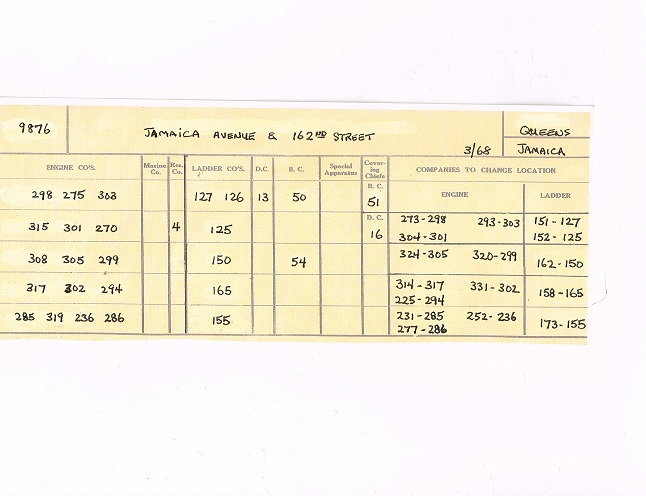 9876
JAMAICA AVENUE & 162ND STREET
3/68
QUEENS
JAMAICA
ENGINE CO'S. Marine Co. Res. Co. LADDER CO'S. D.C. B.C. Special Apparatus Cover-ing Chiefs COMPANIES TO CHANGE LOCATION
B.C. ENGINE LADDER
298 275 303 127 126 13 50 51
D.C. 273-298 293-303 151-127
315 301 270 4 125 16 304-301 152-125
308 305 299 150 54 324-305 320-299 162-150
317 302 294 165 314-317 331-302 158-165
225-294
285 319 236 286 155 231-285 252-236 173-155
277-286